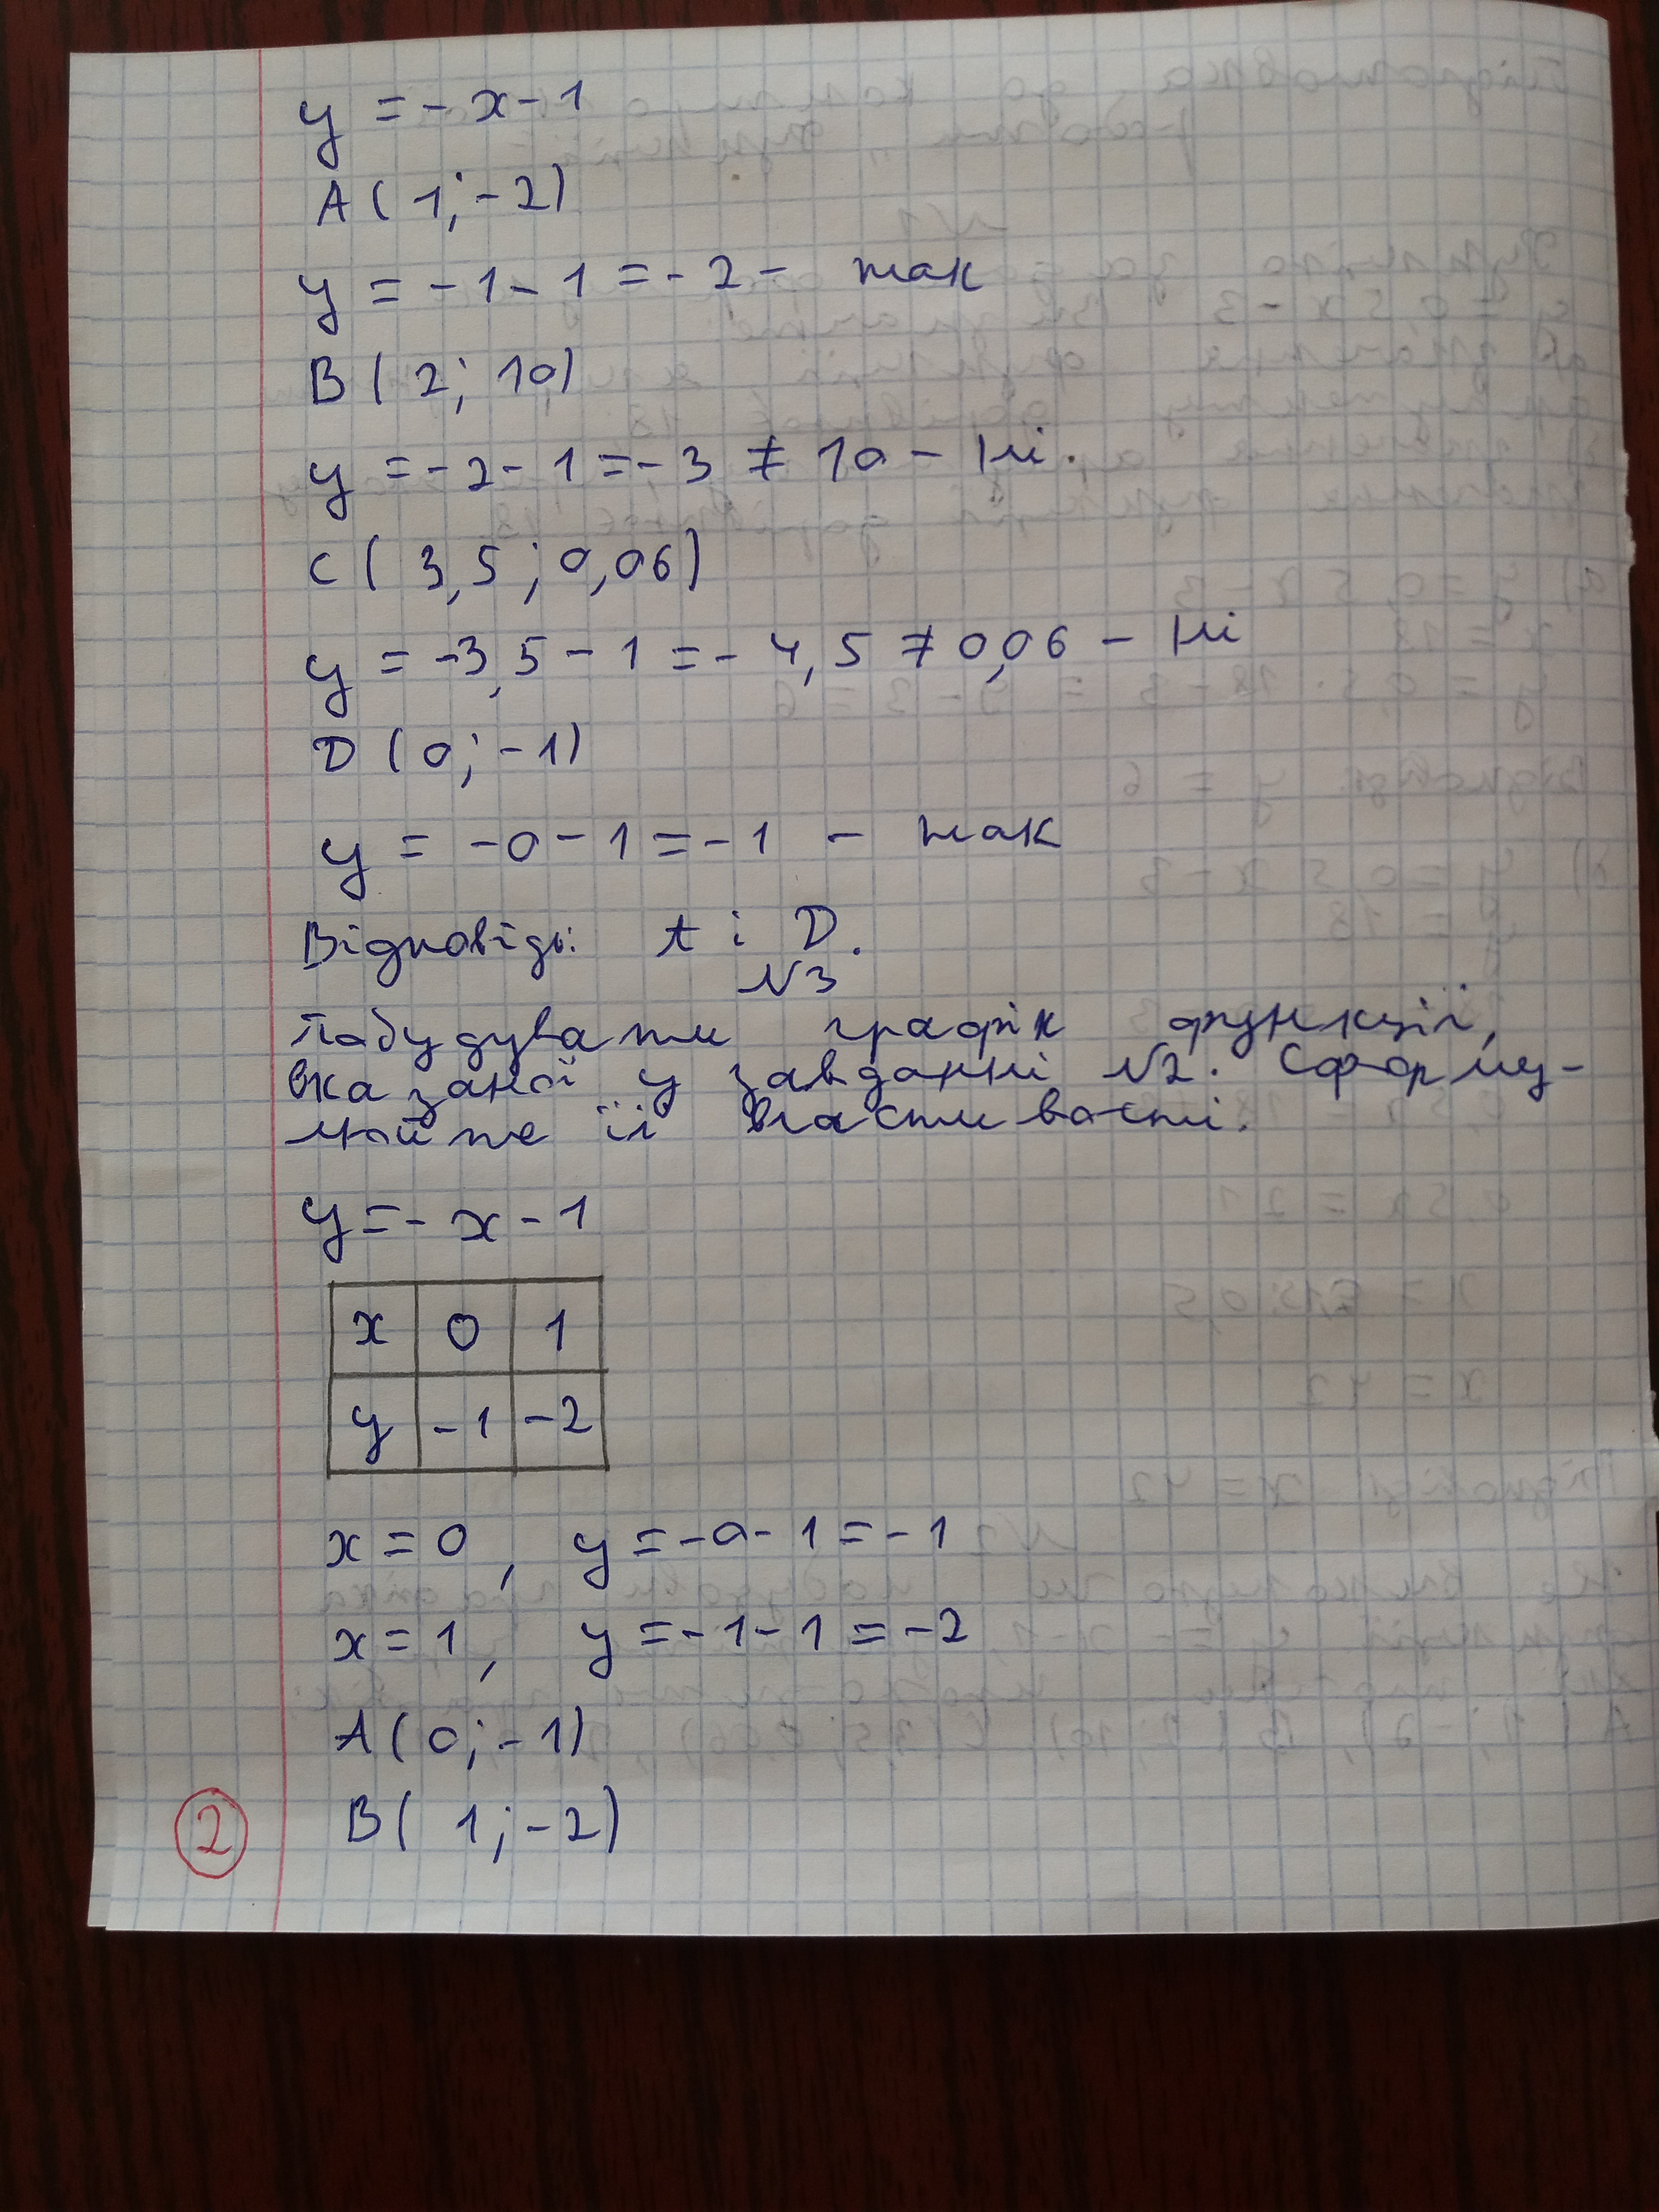 y = - x - 1
A ( 1; - 2)
y = - 1 - 1 = - 2 - так
B ( 2; 10)
y = - 2 - 1 = - 3 ≠ 10 - Ні.
C ( 3,5 ; 0,06)
y = -3,5 - 1 = - 4,5 ≠ 0,06 - Ні
D ( 0; - 1)
y = - 0 - 1 = - 1 - так
Відповідь: A і D.
N3
Побудувати графік функції,
вказаної у завданні N2. Сформу-
люйте її властивості.
y = - x - 1
x 0 1
y -1 -2
x = 0 , y = - 0 - 1 = - 1
x = 1 , y = - 1 - 1 = - 2
A ( 0; - 1)
B ( 1; - 2)
2